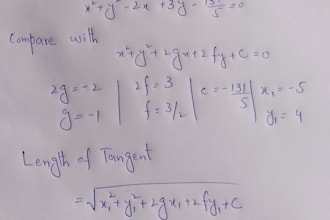 x² + y² - 2x + 3y - 131/5 = 0
Compare with
x² + y² + 2gx + 2fy + C = 0
2g = -2 | 2f = 3 | c = -131/5 | x₁ = -5
g = -1 | f = 3/2 | y₁ = 4
Length of Tangent
= √x₁² + y₁² + 2gx₁ + 2fy₁ + C